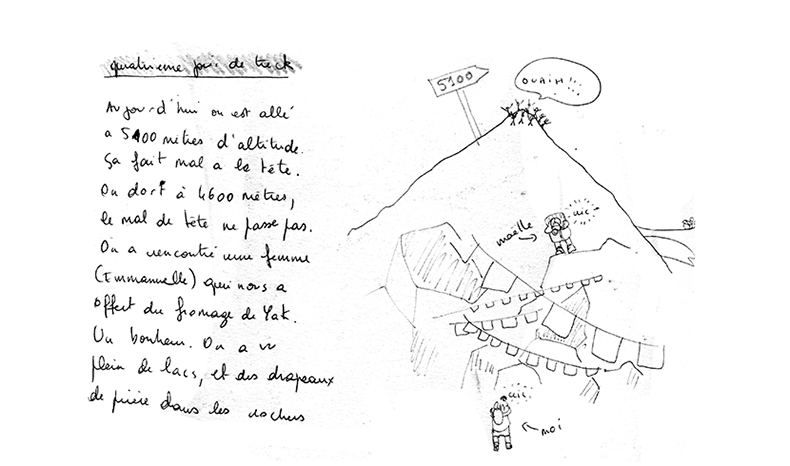 quatrieme jour de treck
Aujourd'hui on est allé
a 5100 mètres d'altitude.
ça fait mal a la tête.
On dort à 4600 mètres,
le mal de tête ne passe pas.
On a rencontré une femme
(Emmanuelle) qui nous a
offert du fromage de Yak.
Un bonheur. On a vu
plein de lacs, et des drapeaux
de prière dans les rochers
5100
OUAIH!!!
clic
maëlle
clic
moi